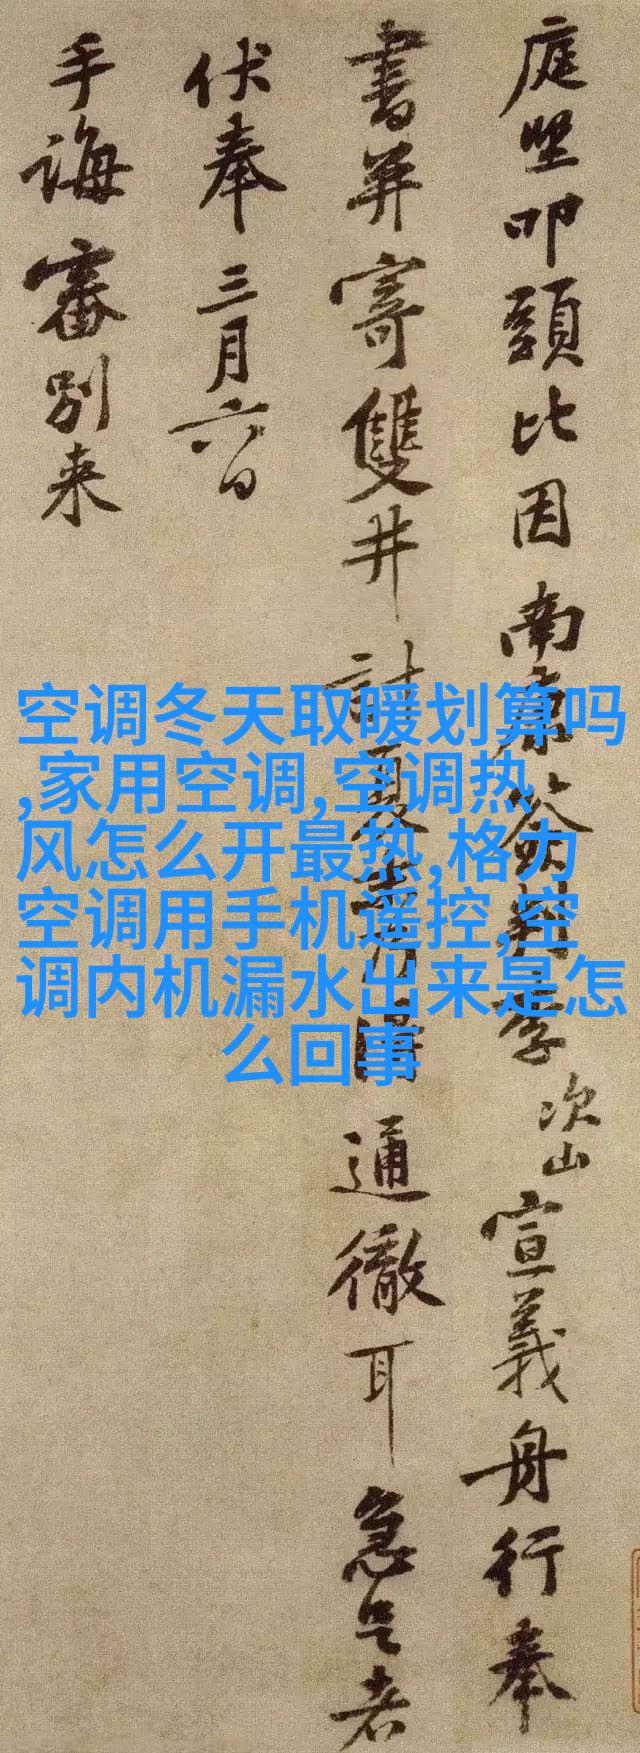 庭坚叩頭比因南康簽判李次山宣義舟行奉
書并寄雙井計夏通徹耳急足者
伏奉三月六日
手誨審別来
空调冬天取暖划算吗
,家用空调,空调热
风怎么开最热,格力
空调用手机遥控,空
调内机漏水出来是怎
么回事